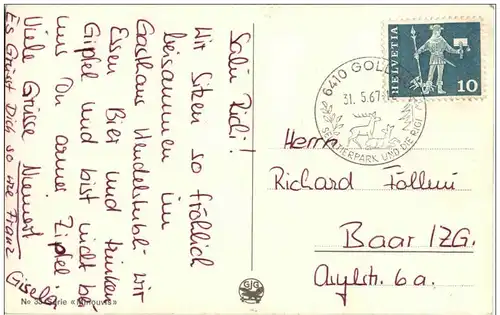 Salü Richi!
Wir Sitzen so fröhlich
beisammen im
Gasthaus Wendelstübli. Wir
Essen Bier und trinken
Gipfel und bist nicht bei
uns Du armer Zipfel
Viele Grüsse
Es Grüsst Dich so wie Franz Gisela
HELVETIA
10
6410 GOLDAU
31.5.67
TIERPARK UND DIE RIGI
Herrn
Richard Föllmi
Baar /ZG.
Asylstr. 6a.
GG
№ 33 Serie «Minouvis»